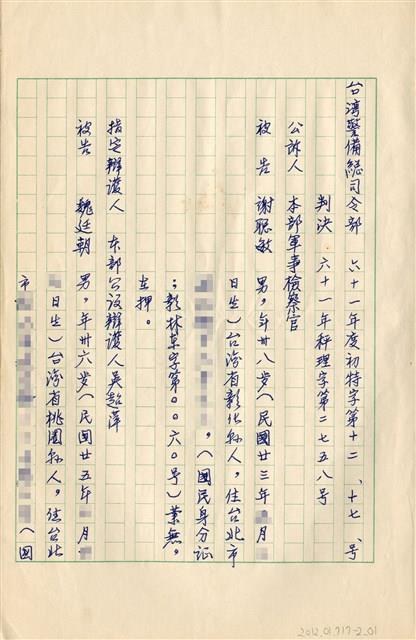 台湾警備總司令部 六十一年度初特字第十二、十七、號
判決 六十一年秤理字第二七五八號
公訴人 本部軍事檢察官
被告 謝聰敏 男，年卅八岁（民國廿三年 月
日生）台湾省彰化縣人，住台北市
，（國民身分証
；彰林草字第〇〇六〇號）業無。
在押。
指定辯護人 本部公設辯護人吳超萍
被告 魏廷朝 男，年卅六岁（民國廿五年 月
日生）台湾省桃園縣人，住台北
市 （國
2012.01.717-2.01